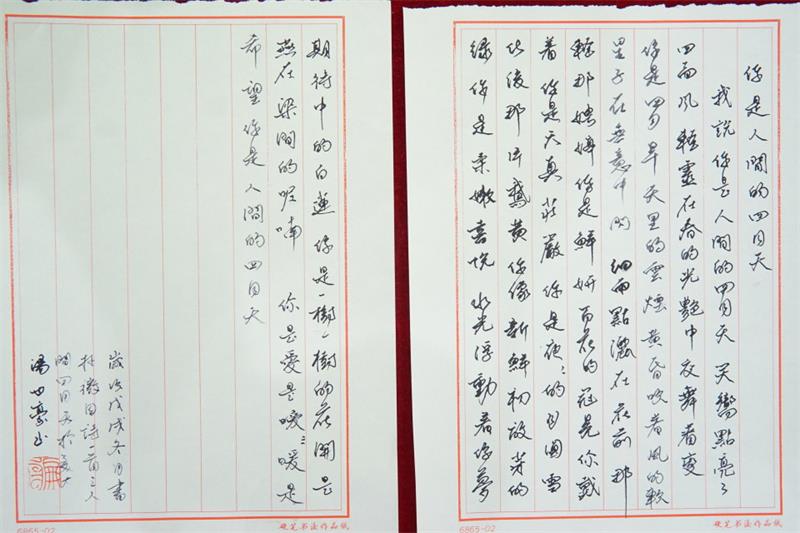 你是人間的四月天
我說你是人間的四月天 笑響點亮了
四面風輕靈在春的光艷中交舞着變
你是四月早天里的雲煙黄昏吹着風的軟
星子在無意中閃 細雨點灑在花前 那
輕那娉婷你是鮮妍百花的冠冕你戴
着你是天真莊嚴你是夜〻的月圓雪
化後那片鵝黄你像新鮮初放芽的
緑你是柔嫩喜悦水光浮動着你夢
硬笔书法作品纸
6865-02
期待中的白蓮 你是一樹一樹的花開是
燕在梁間的呢喃 你是愛是暖〻暖是
希望你是人間的四月天
歲次戊戌冬月書
林徽因詩一首之人
間四月天於
硬笔书法作品纸
6865-02